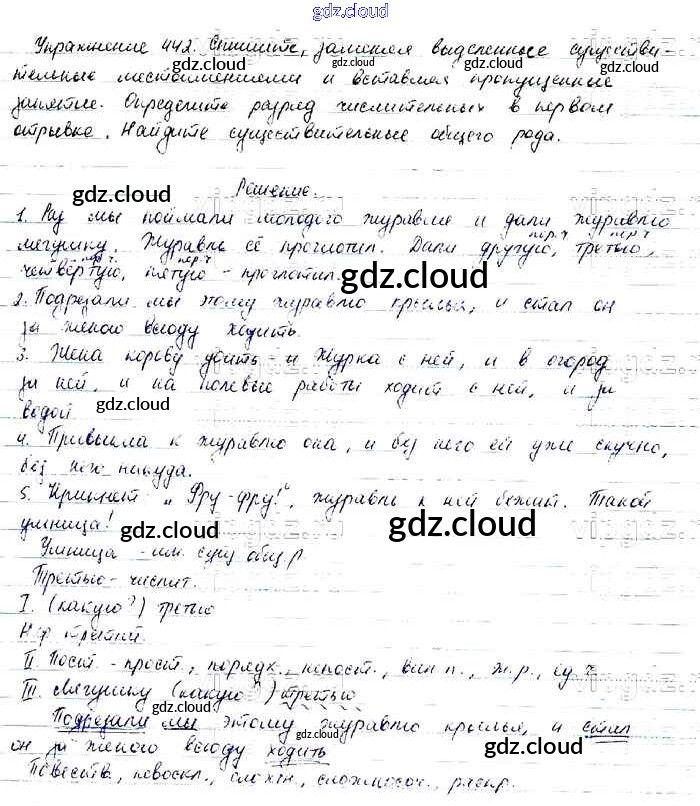 gdz.cloud
Упражнение 442. Спишите, заменяя выделенные существи-
тельные местоимениями и вставляя пропущенные
запятые. Определите разряд числительных в первом
отрывке. Найдите существительные общего рода.
gdz.cloud
Решение.
gdz.cloud
1. Раз мы поймали молодого журавля и дали журавлю
лягушку. Журавль её проглотил. Дали другую, третью,
четвёртую, пятую - проглотил.
gdz.cloud
2. Подрезали мы этому журавлю крылья, и стал он
за женою всюду ходить.
3. Жена корову доить - и Журка с ней, и в огород
gdz.cloud
за ней, и на полевые работы ходит с ней, и за
водой.
gdz.cloud
4. Привыкла к журавлю она, и без него ей уже скучно,
без него никуда.
gdz.cloud
5. Крикнет „Фру-фру!", журавль к ней бежит. Такой
умница!
gdz.cloud gdz.cloud
Умница - им. сущ общ р
Третью - числит.
I. (какую?) третью
Н.ф третий.
II Пост. - прост., порядк., непост., вин п., ж. р., ед. ч
III. лягушку (какую?) третью
gdz.cloud
Подрезали мы этому журавлю крылья, и стал
он за женою всюду ходить
gdz.cloud
Повеств., невоскл., сложн., сложносоч., распр.
gdz.cloud